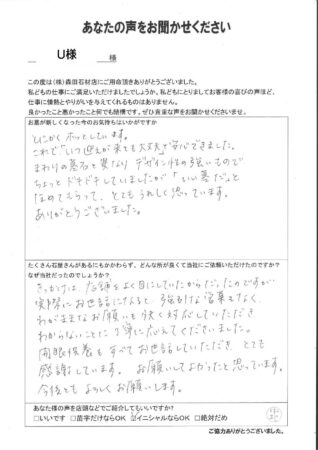 あなたの声をお聞かせください
U様 様
この度は(株)森田石材店にご用命頂きありがとうございました。
私どもの仕事にご満足いただけましたでしょうか。私どもにとりましてお客様の喜びの声ほど、
仕事に情熱とやりがいを与えてくれるものはありません。
良かったこと悪かったこと何でも結構です。ぜひ貴重な声をお聞かせくださいませ。
お墓が新しくなった今のお気持ちはいかがですか
とにかくホッとしています。
これで「いつ迎えが来ても大丈夫」と安心できました。
まわりの墓石と異なり、デザイン性の強いもので
ちょっとドキドキしていましたが「いい墓だ」と
ほめてもらって、とてもうれしく思っています。
ありがとうございました。
たくさん石屋さんがあるにもかかわらず、どんな所が良くて当社にご依頼いただけたのですか?
なぜ当社だったのでしょうか?
きっかけは、店舗をよく目にしていたからだったのですが
実際にお世話になると、強引な営業もなく、
わがままなお願いも快く対応していただき
わからないことに丁寧に応えてくださいました。
開眼供養もすべてお世話していただき、とても
感謝しています。お願いしてよかったと思っています。
今後ともよろしくお願いします。
あなた様の声を店頭などでご紹介してもいいですか?
□いいです □苗字だけならOK ☑イニシャルならOK □絶対だめ
ご協力ありがとうございました。